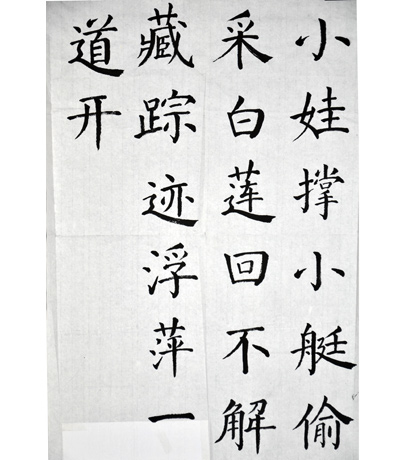 小娃撑小艇偷
采白莲回不解
藏踪迹浮萍一
道开